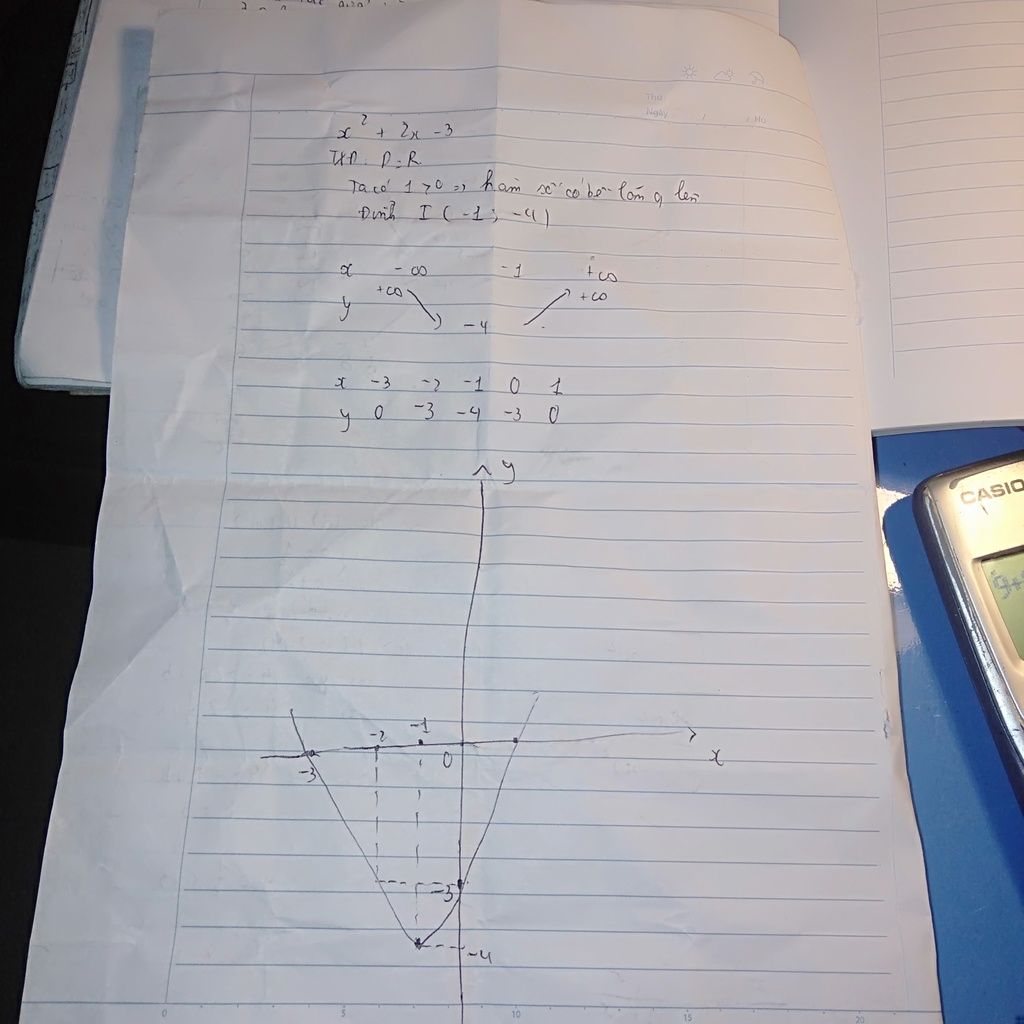 Thứ
Ngày / / No
x² + 2x - 3
TXĐ: D=R
Ta có 1 > 0 => hàm số có bề lõm q lên
Đỉnh I ( -1 ; -4)
x -∞ -1 +∞
y +∞ -4 +∞
x -3 -2 -1 0 1
y 0 -3 -4 -3 0
y
CASIO
-2 -1
-3 0 x
-3
-4
0 5 10 15 20